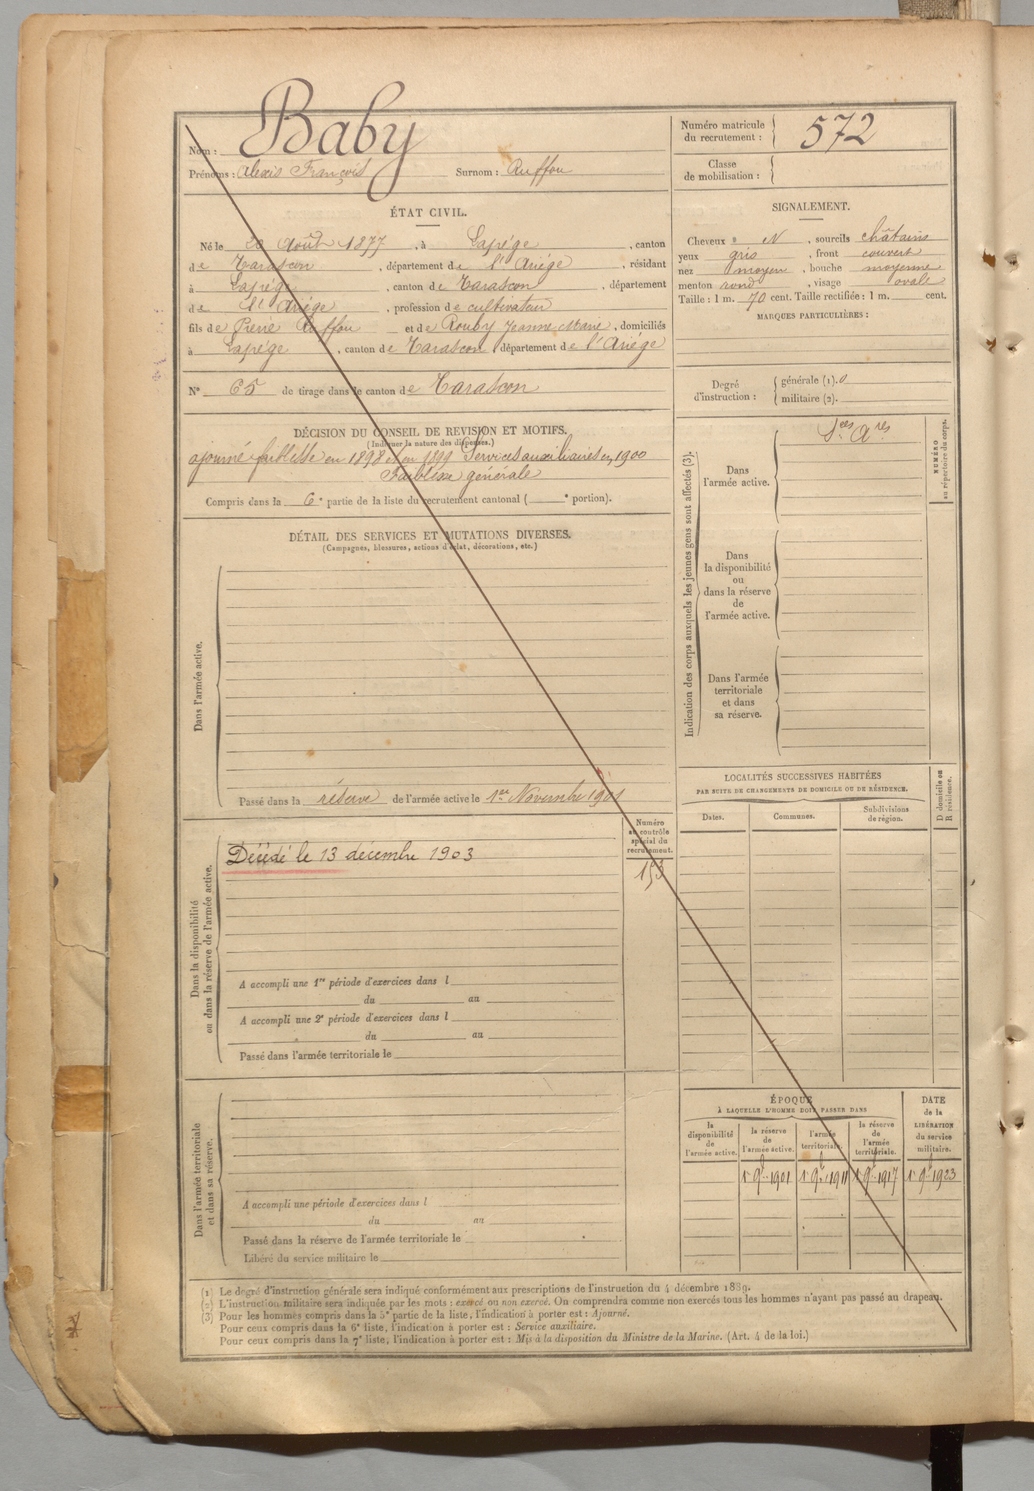 Nom : Baby
Prénoms : Alexis François Surnom : Ruffou
Numéro matricule du recrutement : 572
Classe de mobilisation :
ÉTAT CIVIL.
Né le 20 Août 1877, à Lapége, canton
de Tarascon, département de l'Ariége, résidant
à Lapége, canton de Tarascon, département
de l'Ariége, profession de cultivateur
fils de Pierre Ruffou et de Rouby Jeanne Marie, domiciliés
à Lapége, canton de Tarascon, département de l'Ariége
N° 65 de tirage dans le canton de Tarascon
SIGNALEMENT.
Cheveux et N, sourcils châtains
yeux gris, front couvert
nez moyen, bouche moyenne
menton rond, visage ovale
Taille : 1 m. 70 cent. Taille rectifiée : 1 m. cent.
MARQUES PARTICULIÈRES :
Degré d'instruction : générale (1). 0
militaire (2).
DÉCISION DU CONSEIL DE REVISION ET MOTIFS.
(Indiquer la nature des dispenses.)
ajourné faiblesse en 1898 et en 1899 Services auxiliaires en 1900
Faiblesse générale
Compris dans la 6e partie de la liste du recrutement cantonal ( e portion).
DÉTAIL DES SERVICES ET MUTATIONS DIVERSES.
(Campagnes, blessures, actions d'éclat, décorations, etc.)
Dans l'armée active.
Passé dans la réserve de l'armée active le 1er Novembre 1901
Indication des corps auxquels les jeunes gens sont affectés (3).
Dans l'armée active.
Sces Ares
Dans la disponibilité ou dans la réserve de l'armée active.
Dans l'armée territoriale et dans sa réserve.
NUMÉRO au répertoire du corps.
LOCALITÉS SUCCESSIVES HABITÉES
PAR SUITE DE CHANGEMENTS DE DOMICILE OU DE RÉSIDENCE.
Dates. Communes. Subdivisions de région. D domicile ou R résidence.
Dans la disponibilité ou dans la réserve de l'armée active.
Numéro au contrôle spécial du recrutement.
153
Décédé le 13 décembre 1903
A accompli une 1re période d'exercices dans l
du au
A accompli une 2e période d'exercices dans l
du au
Passé dans l'armée territoriale le
Dans l'armée territoriale et dans sa réserve.
A accompli une période d'exercices dans l
du au
Passé dans la réserve de l'armée territoriale le
Libéré du service militaire le
ÉPOQUE
À LAQUELLE L'HOMME DOIT PASSER DANS
DATE de la LIBÉRATION du service militaire.
la disponibilité de l'armée active. la réserve de l'armée active. l'armée territoriale. la réserve de l'armée territoriale.
1er 9bre 1901 1er 9bre 1911 1er 9bre 1917 1er 9bre 1923
(1) Le degré d'instruction générale sera indiqué conformément aux prescriptions de l'instruction du 4 décembre 1889.
(2) L'instruction militaire sera indiquée par les mots : exercé ou non exercé. On comprendra comme non exercés tous les hommes n'ayant pas passé au drapeau.
(3) Pour les hommes compris dans la 5e partie de la liste, l'indication à porter est : Ajourné.
Pour ceux compris dans la 6e liste, l'indication à porter est : Service auxiliaire.
Pour ceux compris dans la 7e liste, l'indication à porter est : Mis à la disposition du Ministre de la Marine. (Art. 4 de la loi.)